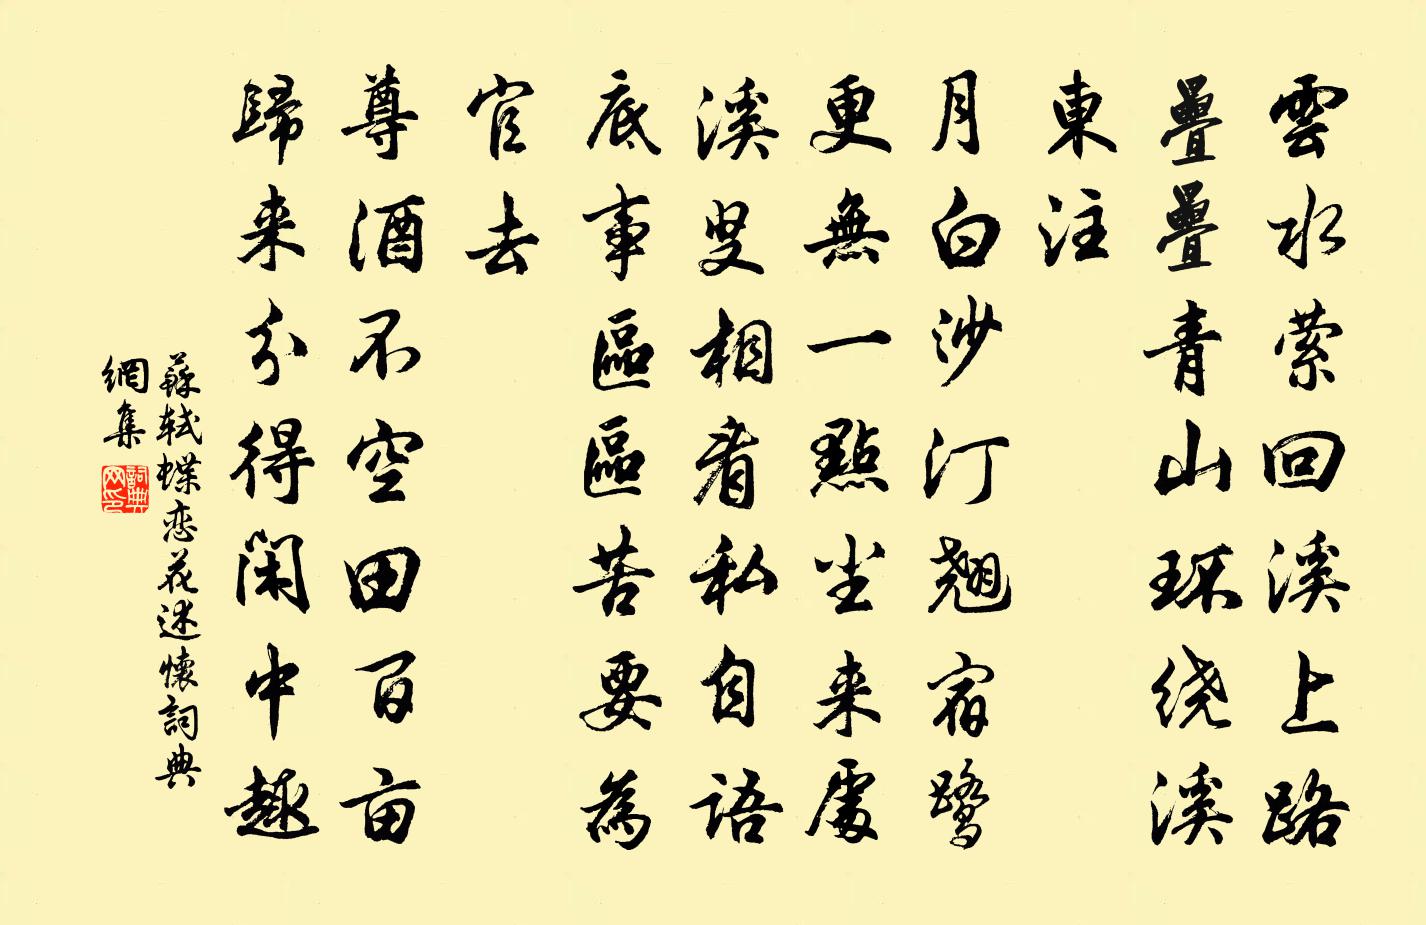 雲水萦回溪上路
疊疊青山環绕溪
東注
月白沙汀翘宿鹭
更無一點尘来處
溪叟相看私自語
底事區區苦要為
官去
尊酒不空田百亩
歸来分得閑中趣
蘇轼蝶恋花述懷詞典
網集
詞典
网印